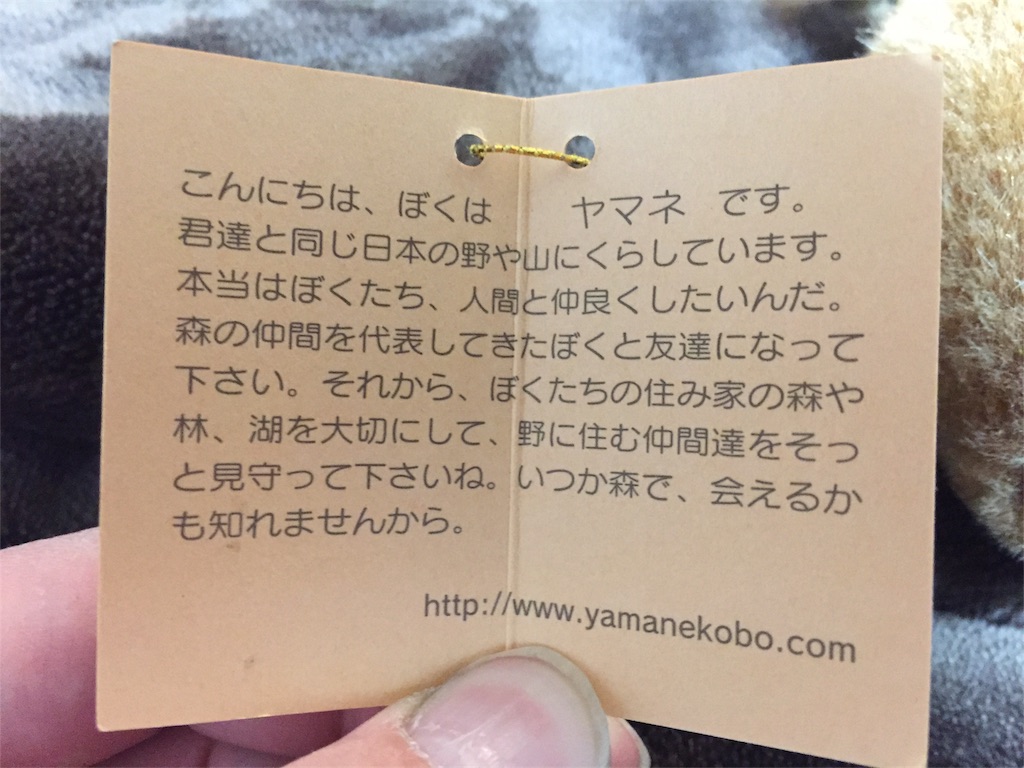 こんにちは、ぼくは　ヤマネ　です。
君達と同じ日本の野や山にくらしています。
本当はぼくたち、人間と仲良くしたいんだ。
森の仲間を代表してきたぼくと友達になって
下さい。それから、ぼくたちの住み家の森や
林、湖を大切にして、野に住む仲間達をそっ
と見守って下さいね。いつか森で、会えるか
も知れませんから。
http://www.yamanekobo.com